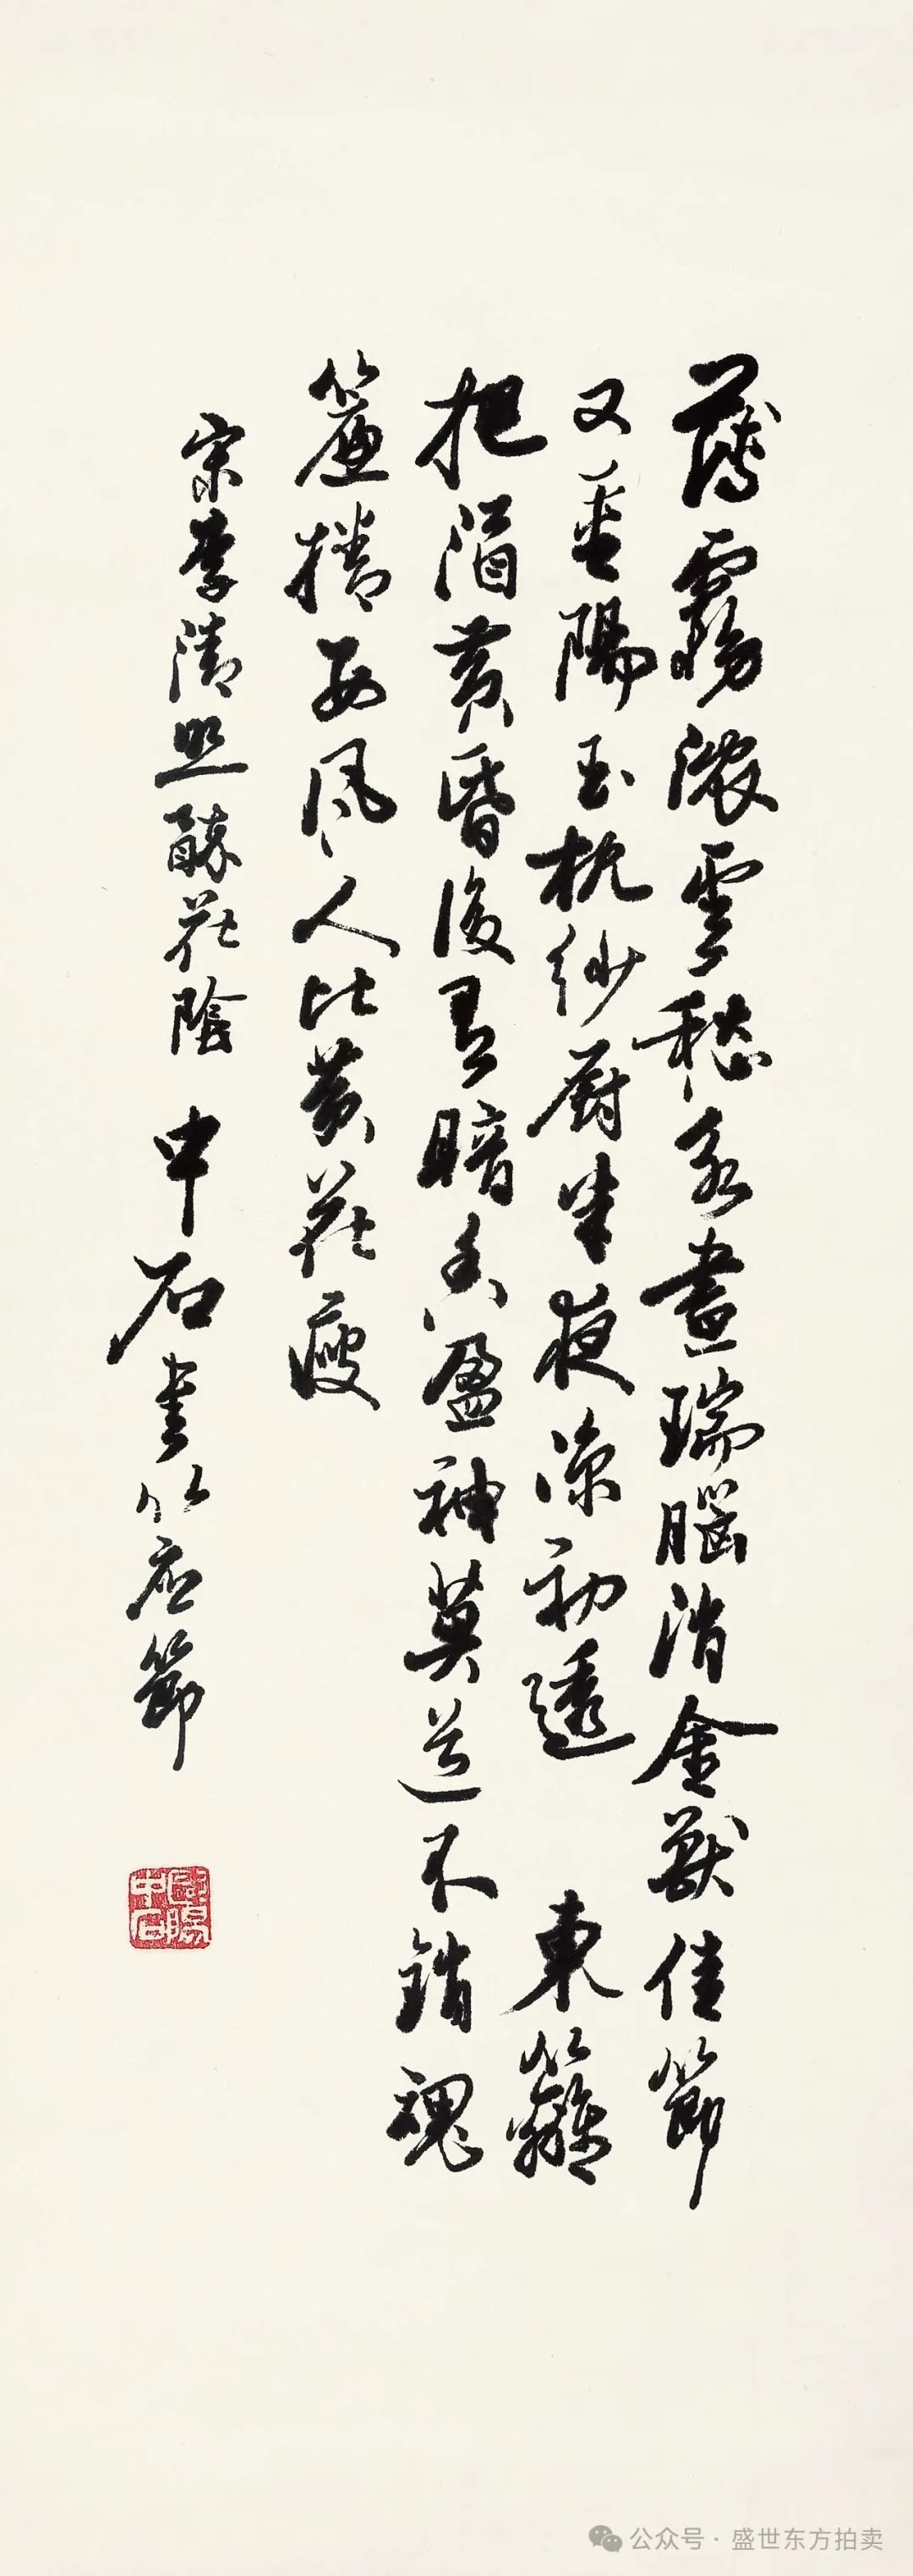 薄霧濃雲愁永晝瑞腦消金獸佳節
又重陽玉枕紗厨半夜涼初透 東籬
把酒黃昏後有暗香盈袖莫道不銷魂
簾捲西風人比黃花瘦
宋李清照醉花陰 中石書以應節
歐陽中石
公众号·盛世东方拍卖